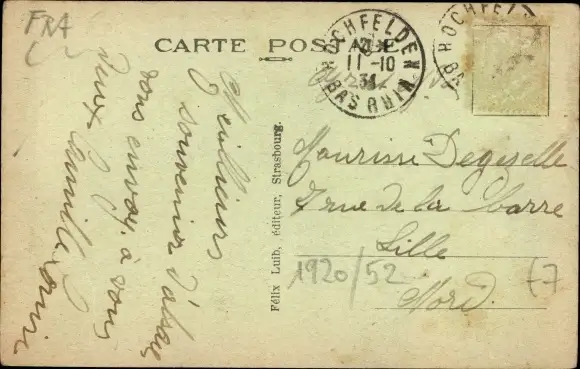 FRA
CARTE POSTALE
ROCHFELDEN
11-10
34
BAS RHIN
ROCHFELDEN
BAS
Meilleurs
souvenir d'alsace
vous envoy. à vous
deux Camille
Félix Luib, éditeur, Strasbourg.
Mourisse Degeselle
7 rue de la Barre
Lille
Nord.
1920/52